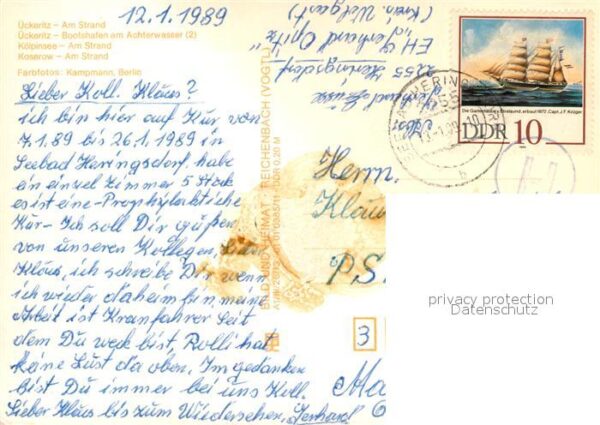 12.1.1989
Ückeritz – Am Strand
Ückeritz – Bootshafen am Achterwasser (2)
Kölpinsee – Am Strand
Koserow – Am Strand
Farbfotos: Kampmann, Berlin
Lieber Koll. Klaus?
ich bin hier auf Kur von
7.1.89 bis 26.1.1989 in
Seebad Heringsdorf, habe
ein einzel zimmer 5 Stock
es ist eine Prophylaktische
Kur – Ich soll Dir grüßen
von unseren Kollegen,
Klaus, ich schreibe Dir wenn
ich wieder daheim bin meine
Arbeit ist Kranfahrer seit
dem Du weck bist, Rolli hat
keine Lust da oben, Im gedanken
bist Du immer bei uns Koll.
Lieber Klaus bis zum Wiedersehen, Gerhard
EH Gerhard Opitz
2255 Heringsdorf
(Kreis Wolgast)
BILD UND HEIMAT REICHENBACH (VOGTL)
Herrn
Klaus
PS
3
Ma
DDR 10
privacy protection
Datenschutz